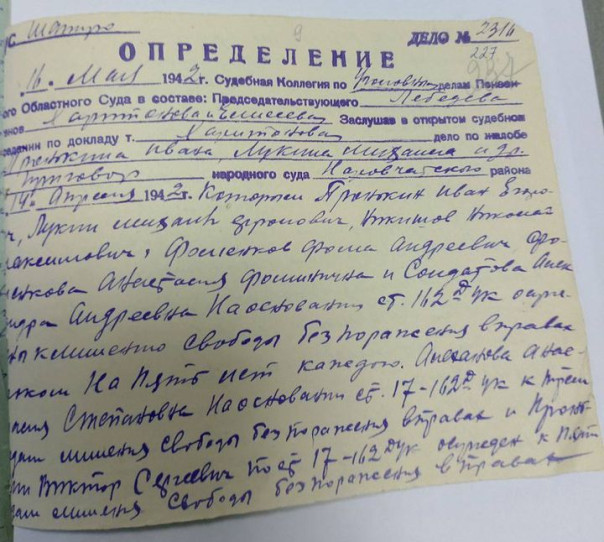 Шапиро 9
ОПРЕДЕЛЕНИЕ ДЕЛО № 2316
227
16. Мая 1942 г. Судебная Коллегия по Уголовным делам Пензен-
ного Областного Суда в составе: Председательствующего Лебедева
нов Харитонова Заслушав в открытом судебном
седании по докладу т. Харитонова дело по жалобе
Пронкина Ивана, Лукина Михаила и др.
Приговор народного суда Наровчатского района
14го Апреля 1942 г. Которым Пронкин Иван
ч, Лукин Михаил
аксимович, Фоменков Фома Андреевич Фо-
менкова Анастасия Фоминична и Солдатова Алек
ндра Андреевна На основании ст. 162 д УК осуж-
ны к лишению свободы без поражения в правах
На Пять лет каждого.
Степановна На основании ст. 17-162 д УК к трем
дам лишения свободы без поражения в правах и Пронк-
ин Виктор Сергеевич по ст 17-162 д УК осужден к Пяти
дам лишения свободы без поражения в правах